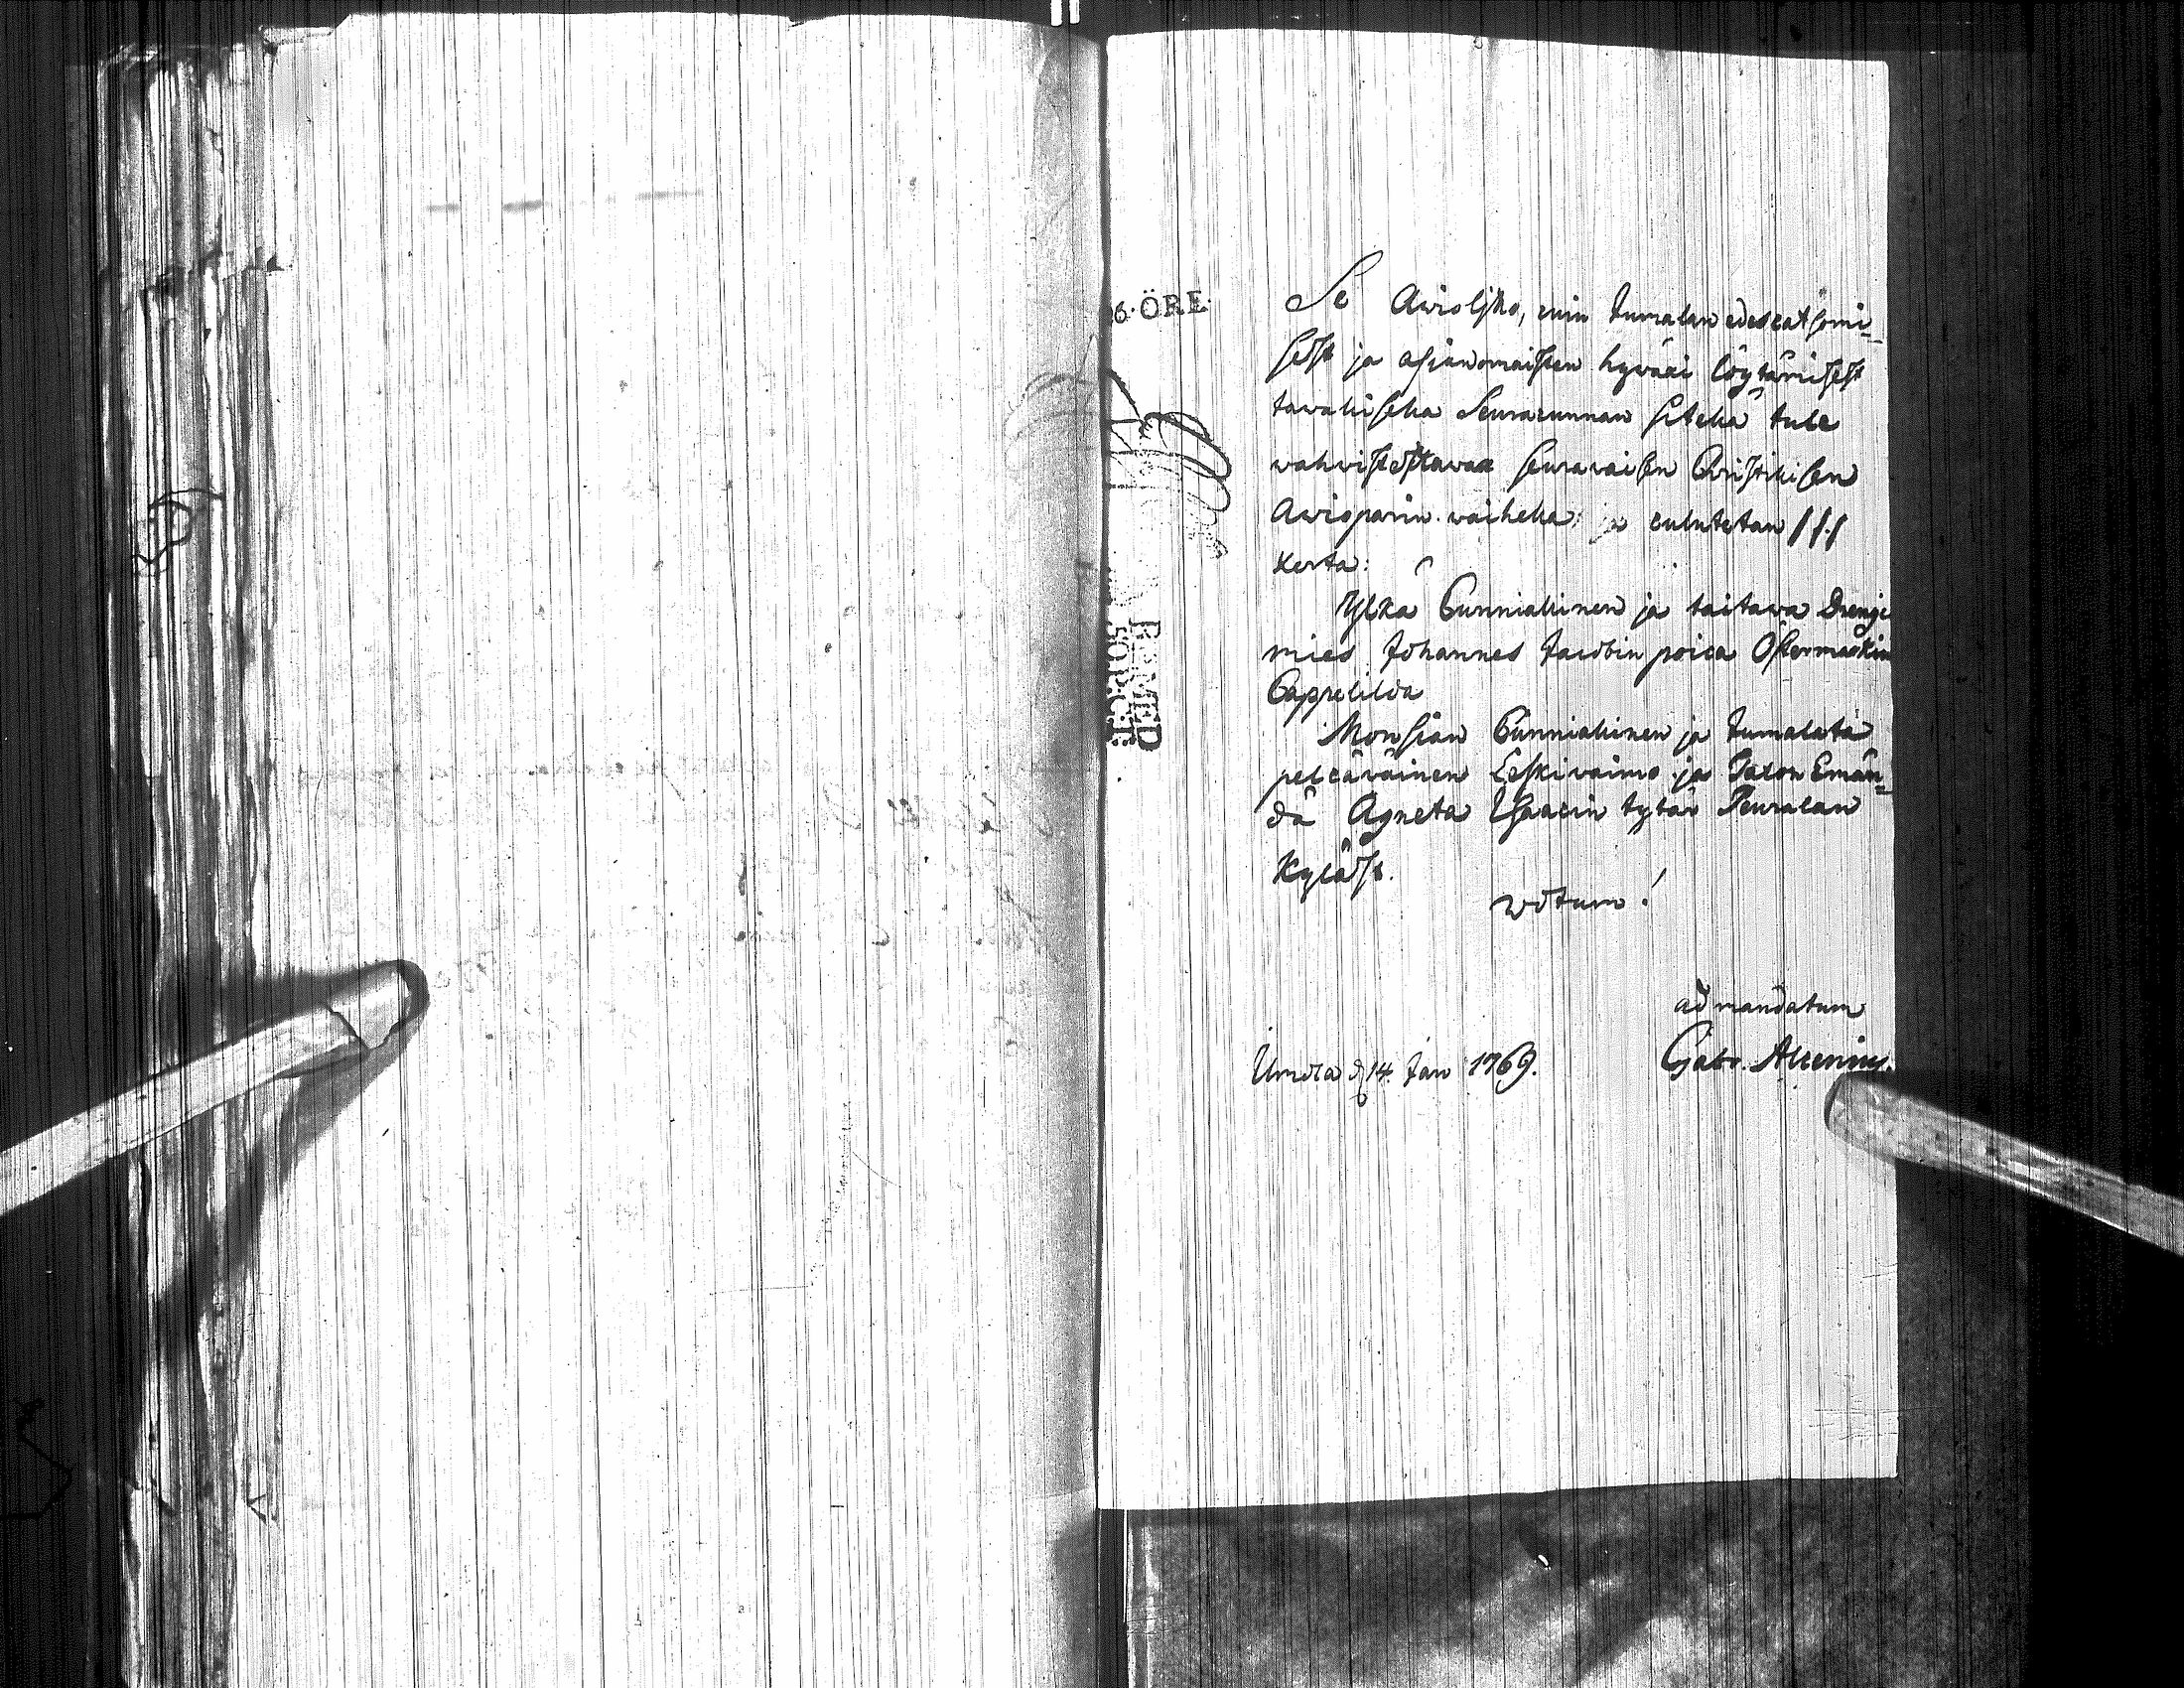 6·ÖRE·
Se Awioliitto, cuin Jumalan edescatzomi-
sest ja asianomaisten hywäxi löytämisest
tawallisella Seuracunnan sitellä tule
wahwistettawaxi seurawaisen Christilisen
Awioparin waihella; ja culutetan ///
kerta:
Ylkä Cunniallinen ja taitawa Drengi
mies Johannes Jacobin poica Östermarkin
Cappelilda
Morsian Cunniallinen ja Jumalata
pelcäväinen Leskivaimo ja Talon Emän-
dä Agneta Isaacin tytär Peuralan
Kyläst.
votum!
ad mandatum
Umola d 14. Jan 1769.
Gabr. Alcenius.